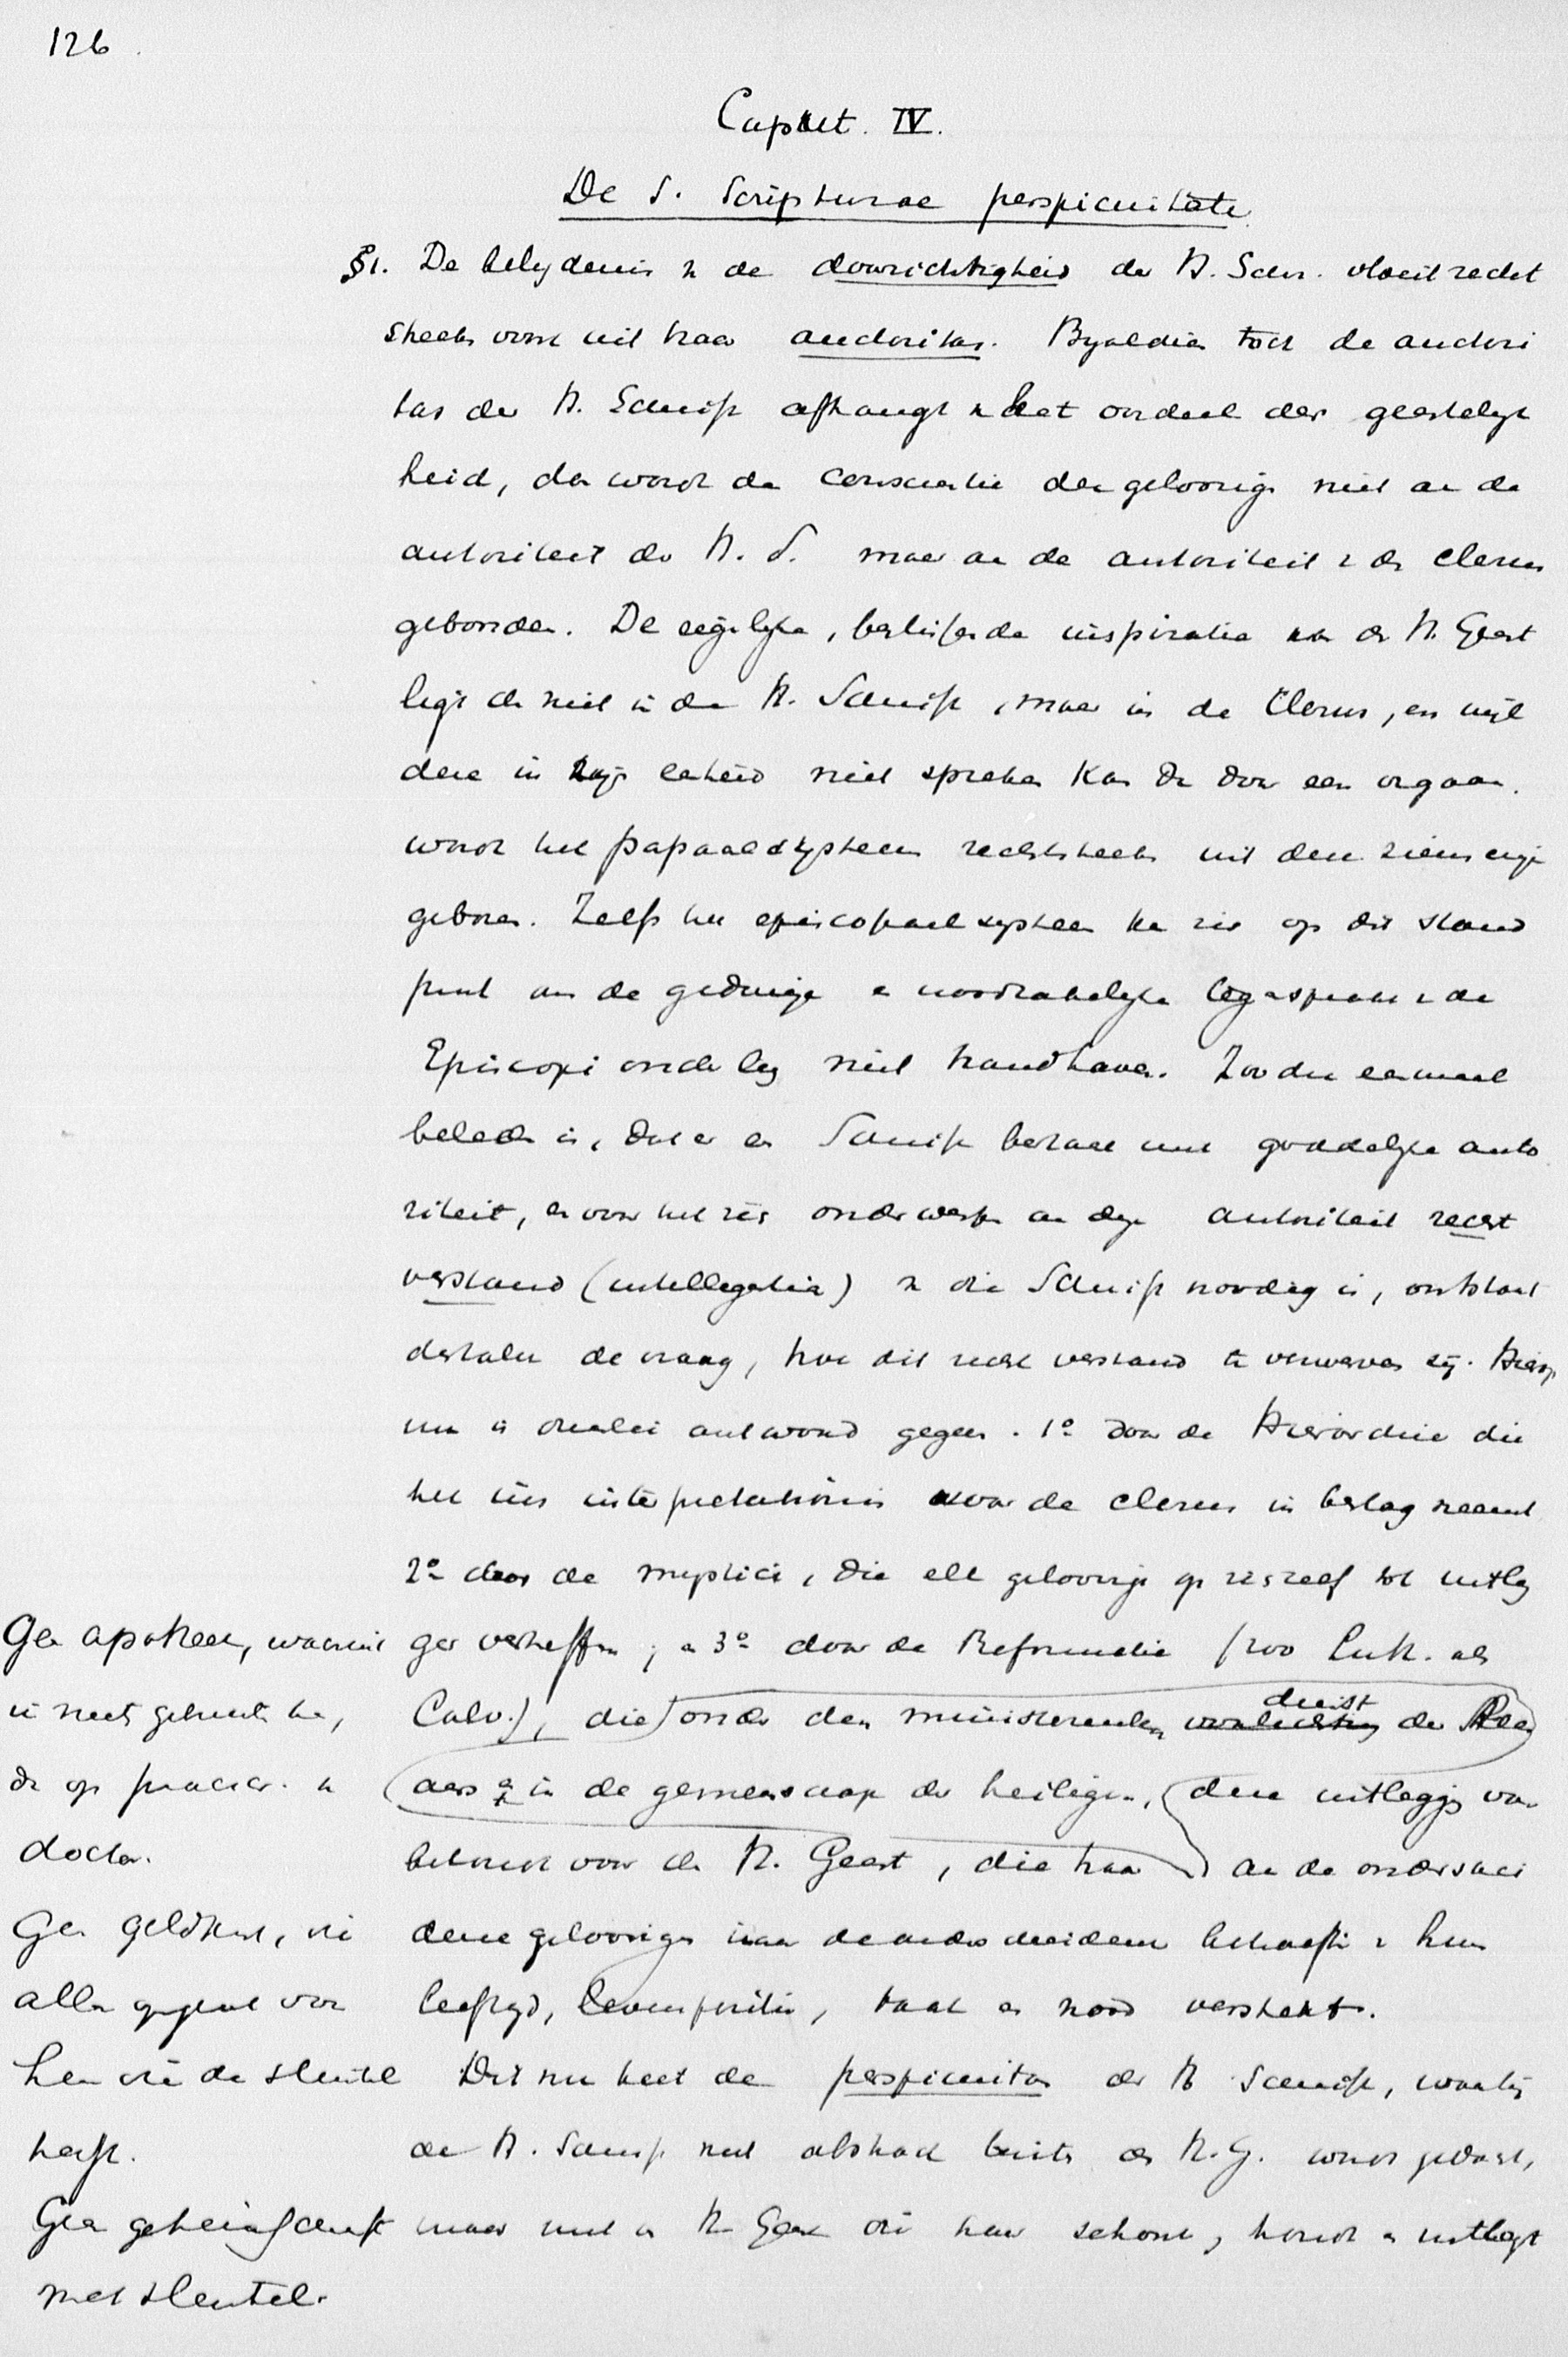 126
Caput. IV.
De S. Scripturae perspicuitate
§1. De belydenis v de doorzichtigheid der H. Schr. vloeit recht
streeks voort uit haar auctoritas. Byaldien toch de auctori
tas der H. Schrift afhangt v het oordeel der geestelyk
heid, dan wordt de conscientie der geloovig niet aan de
autoriteit der H. S. maar aan de autoriteit v den clerus
gebonden. De eigelyke, beslissende inspiratie van den H. Geest
ligt dan niet in de H. Schrift, maar in de Clerus, en wijl
deze in zijn eenheid niet spreken kan dan door een orgaan.
wordt het papaalsysteem rechtstreeks uit deze zienswijze
geboren. Zelfs het episcopaal systeem kan zich op dit stand
punt aan de gedurige en noodzakelyke tegenspraak v de
Episcopi onderling niet handhaven. Zoodra eenmaal
beleden is, dat er een Schrift bestaat met goddelyke auto
riteit, en voor het zich onderwerpen aan deze autoriteit recht
verstand (intellegentia) v die Schrift noodig is, ontstaat
derhalve de vraag, hoe dit recht verstand te verwerven zij. Hierop
nu is drieërlei antwoord gegeven. 1º door de Hierarchie die
het ius interpretationis voor de clerus in beslag neemt
2º door de mystici, die elk geloovige op zichzelf tot uitleg
ger verheffen; en 3º door de Reformatie (zoo Luth. als
Calv.), die onder den ministerieelen dienst der Lee
raars en in de gemeenschap der heiligen, deze uitlegging van
behoudt voor den H. Geest, die haar aan de onderschei
dene geloovigen naar de onderscheidene behoefte v hun
leeftyd, levenspositie, taak en nood verstrekt.
Dit nu heet de perspicuitas der H Schrift, waarbij
de H. Schrift niet abstract buiten den H.G. wordt gedacht,
maar met den H Geest die haar schonk, houdt en uitlegt
Geen apotheek, waaruit
ie niets gebruiken kan,
dan op praescr. v
doctor.
Geen geldkist, die
alleen opengaat voor
hen die de sleutel
heeft.
Geen geheimschrift
met sleutel.